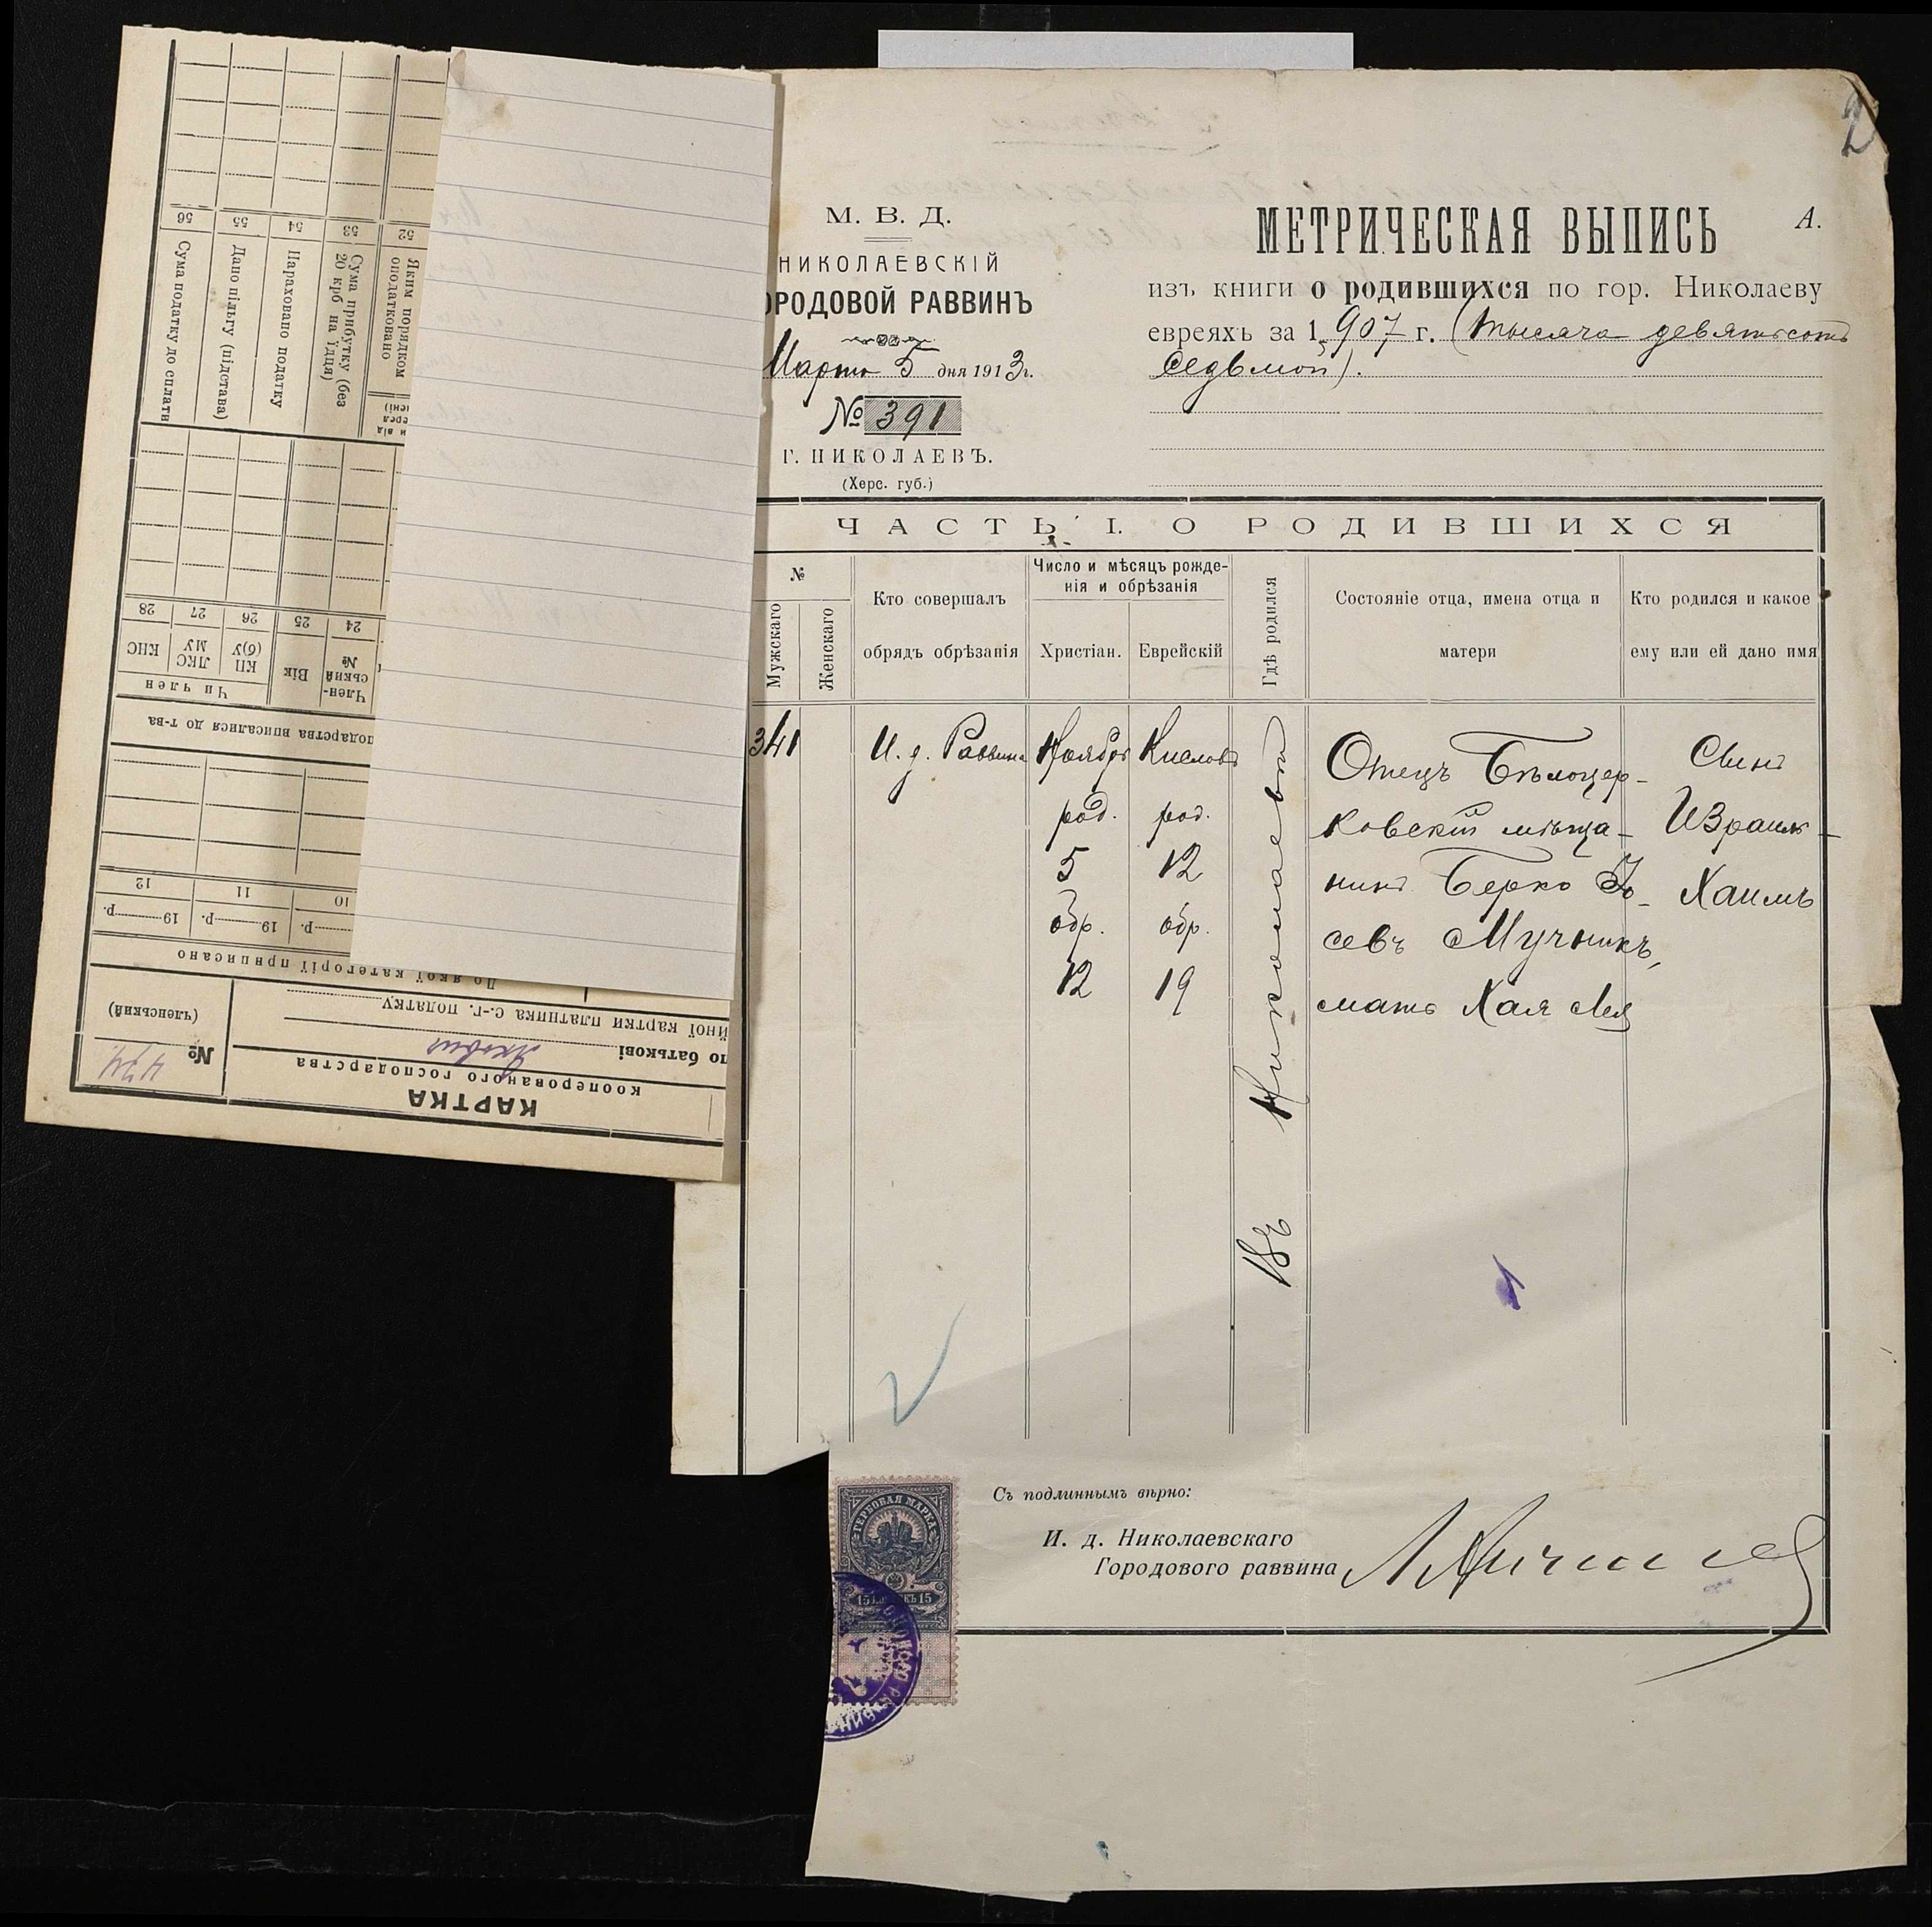 2
М. В. Д.
НИКОЛАЕВСКІЙ
ОРОДОВОЙ РАВВИНЪ
Марта 5 дня 1913 г.
№ 391
Г. НИКОЛАЕВЪ.
(Херс. губ.)
МЕТРИЧЕСКАЯ ВЫПИСЬ
А.
изъ книги о родившихся по гор. Николаеву
евреяхъ за 1907 г. (тысяча девятьсотъ
седьмой).
ЧАСТЬ I. О РОДИВШИХСЯ
№
Мужскаго
Женскаго
Кто совершалъ
обрядъ обрѣзанія
Число и мѣсяцъ рожде-
нія и обрѣзанія
Христіан.
Еврейскій
Гдѣ родился
Состояніе отца, имена отца и
матери
Кто родился и какое
ему или ей дано имя
341
И. д. Раввина
Ноябрь
род.
5
обр.
12
Кислевъ
род.
12
обр.
19
Въ Николаевѣ
Отецъ Бѣлоцер-
ковскій мѣща-
нинъ Берко Іо-
севъ Мучникъ,
мать Хая Лея
Сынъ
Израиль-
Хаимъ
Съ подлиннымъ вѣрно:
И. д. Николаевскаго
Городового раввина
ГЕРБОВАЯ МАРКА
15 КОПѢЕКЪ 15
КАРТКА
кооперованого господарства
№ 474
(членський)
по батькові
йної картки платника с.-г. податку
До якої категорії приписано
19 р.
19 р.
р.
10
11
12
подарства вписалися до т-ва
Член-
ський
№
Вік
Чи член
КП
(б)У
ЛКС
МУ
КНС
24
25
26
27
28
Яким порядком
оподатковано
Сума прибутку (без
20 крб на їдця)
Нараховано податку
Дано пільгу (підстава)
Сума податку до сплати
52
53
54
55
56